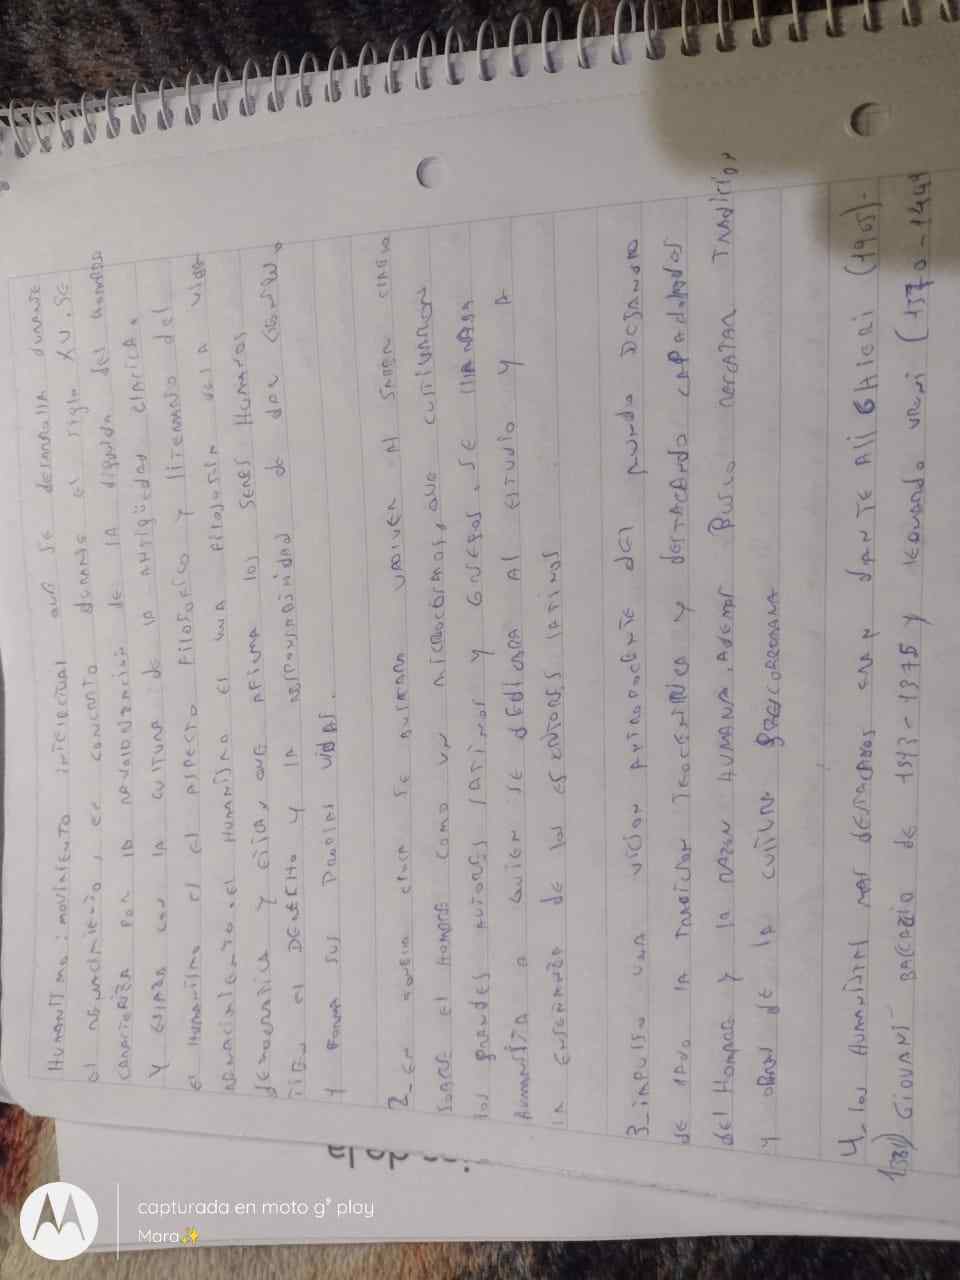 HUMANISMO: MOVIMIENTO INTELECTUAL QUE SE DESARROLLA DURANTE
El RENACIMIENTO, EE CONCENTO DURANTE El siglo XV. SE
CARACTERIZA POR LA REVALORIZACIÓN DE LA DIGNIDA DEL HOMBRE
Y ESTABA CON LA CULTURA DE LA ANTIGÜEDAD CLACICA.
El HUMANISMO El El ASPECTO FILOSOFICO Y LITERARIO DEL
RENACIMIENTO. El HUMANISMO El UNA FILOSOFIA DE LA VIDA
DEMOCRATICA Y ETICA, QUE AFIRMA LOS SERES HUMANOS
TIEN El DERECHO Y LA RESPONSABILIDAD DE DAR
Y FORMA SUS PROPIAS VIDAS.
2- EN SE BUSCABA VOLVER Al SABER
SOBRE El HOMBRE COMO UN MICROCOSMOS, QUE CULTIVARON
LOS GRANDES AUTORES LATINOS Y GRIEGOS. SE LLAMABA
HUMANISTA A QUIEN SE DEDICABA Al ESTUDIO Y A
LA ENSEÑANZA DE LOS ESCRITORES LATINOS
3- IMPULSO UNA VICION ANTROPOCENTE DEL MUNDO DEJANDO
DE LADO LA TRADICION TEOCENTRICA Y DESTACANDO CAPACIDADES
DEL HOMBRE Y LA RAZON HUMANA. ADEMAS BUSCO RESCATAR TRADICION
Y OBRAS DE LA CULTURA GRECORROMANA
4- LOS HUMANISTAS MAS DESTACADOS SON DANTE AliGHIERI (1265-
1321) GIOVANI BACCACIO DE 1313-1375 Y LEONARDO BRUNI (1370-1444
capturada en moto g⁹ play
Mara✨